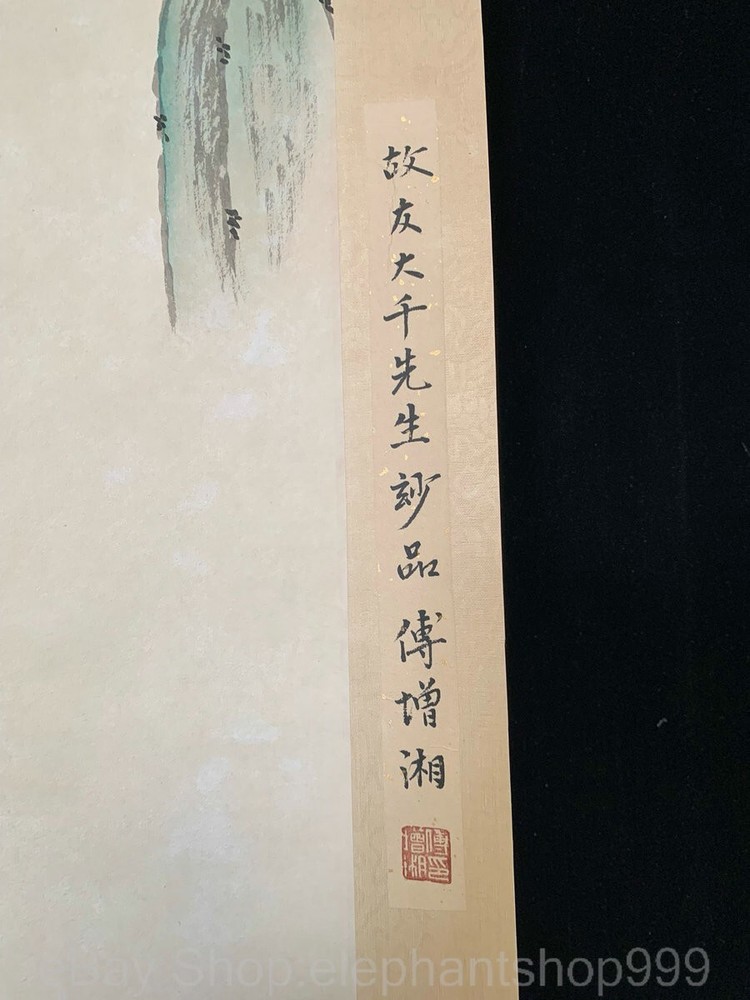 故友大千先生玅品 傅增湘
傅增湘印
eBay Shop.elephantshop999